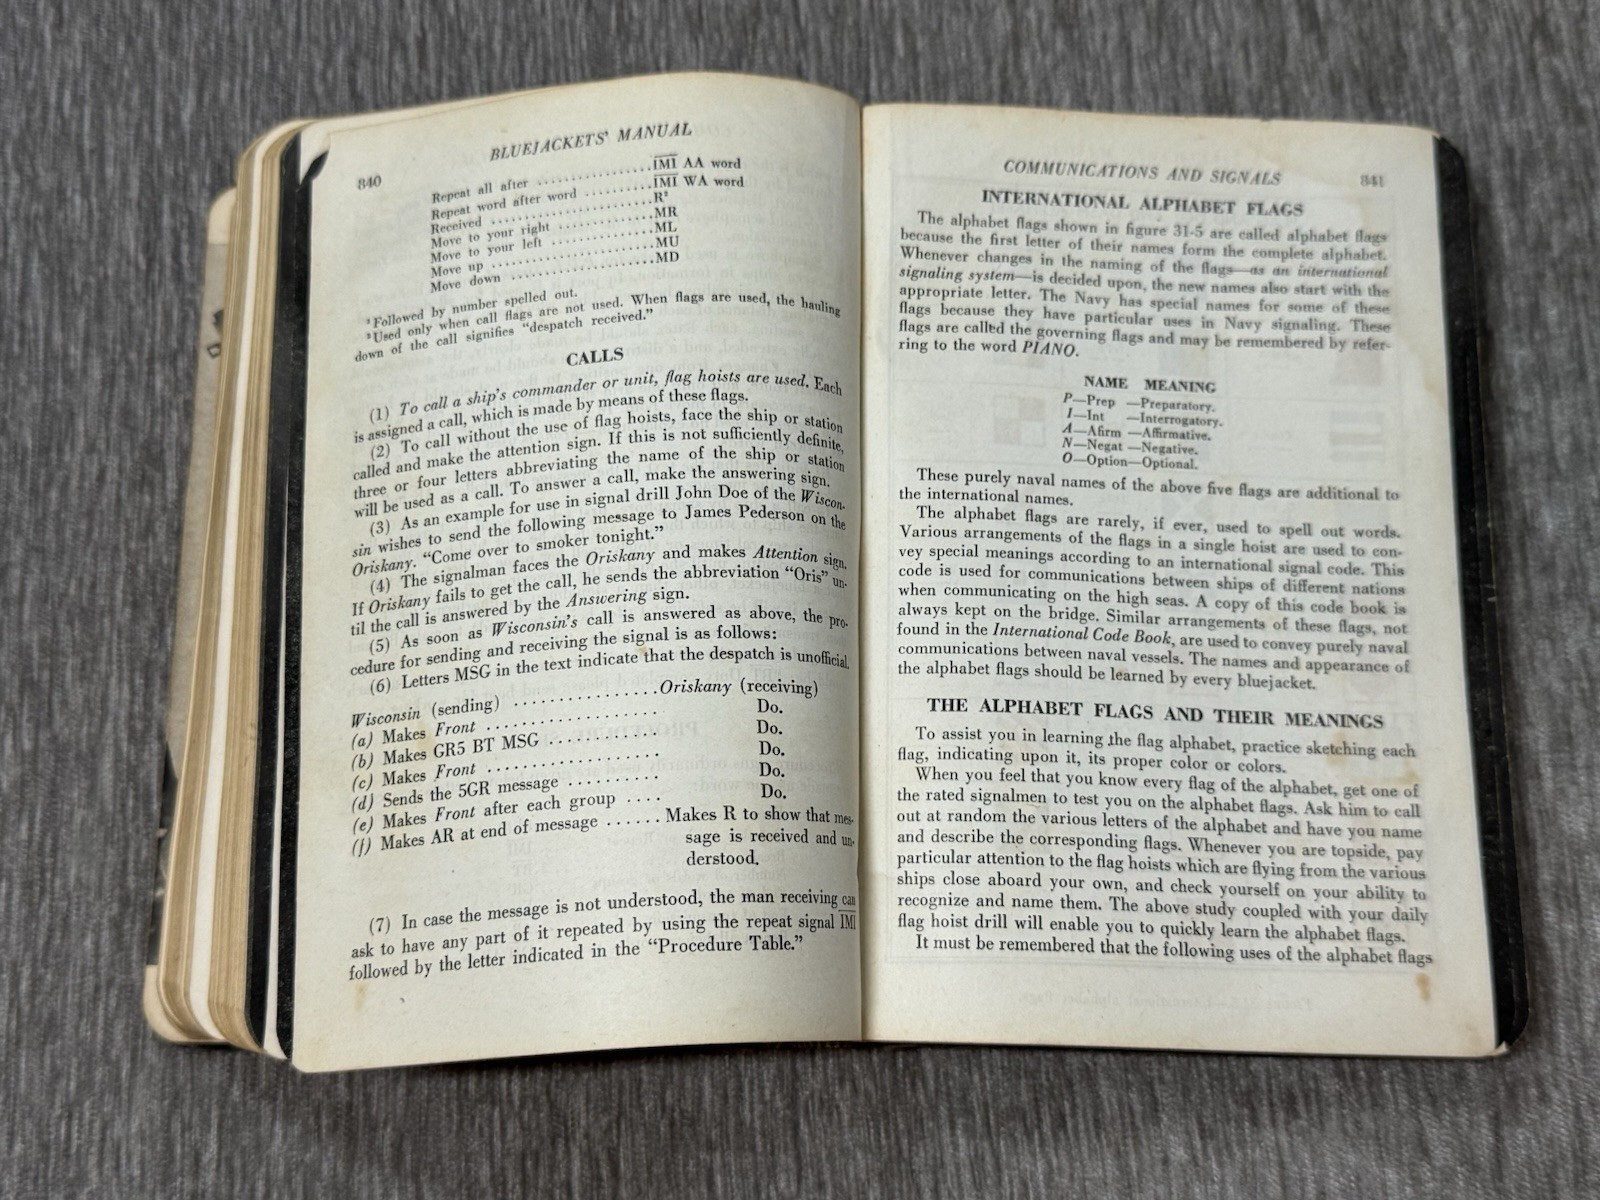 840
BLUEJACKETS' MANUAL
Repeat all after ................I̅M̅I̅ AA word
Repeat word after word ..........I̅M̅I̅ WA word
Received ........................R³
Move to your right ..............MR
Move to your left ...............ML
Move up .........................MU
Move down .......................MD
Followed by number spelled out.
Used only when call flags are not used. When flags are used, the hauling
down of the call signifies "despatch received."
CALLS
(1) To call a ship's commander or unit, flag hoists are used. Each
is assigned a call, which is made by means of these flags.
(2) To call without the use of flag hoists, face the ship or station
called and make the attention sign. If this is not sufficiently definite,
three or four letters abbreviating the name of the ship or station
will be used as a call. To answer a call, make the answering sign.
(3) As an example for use in signal drill John Doe of the Wiscon-
sin wishes to send the following message to James Pederson on the
Oriskany. "Come over to smoker tonight."
(4) The signalman faces the Oriskany and makes Attention sign.
If Oriskany fails to get the call, he sends the abbreviation "Oris" un-
til the call is answered by the Answering sign.
(5) As soon as Wisconsin's call is answered as above, the pro-
cedure for sending and receiving the signal is as follows:
(6) Letters MSG in the text indicate that the despatch is unofficial.
Wisconsin (sending) .............Oriskany (receiving)
(a) Makes Front .................. Do.
(b) Makes GR5 BT MSG ............ Do.
(c) Makes Front .................. Do.
(d) Sends the 5GR message ......... Do.
(e) Makes Front after each group .... Do.
(f) Makes AR at end of message ...... Makes R to show that mes-
sage is received and un-
derstood.
(7) In case the message is not understood, the man receiving can
ask to have any part of it repeated by using the repeat signal I̅M̅I̅
followed by the letter indicated in the "Procedure Table."
COMMUNICATIONS AND SIGNALS
841
INTERNATIONAL ALPHABET FLAGS
The alphabet flags shown in figure 31-5 are called alphabet flags
because the first letter of their names form the complete alphabet.
Whenever changes in the naming of the flags—as an international
signaling system—is decided upon, the new names also start with the
appropriate letter. The Navy has special names for some of these
flags because they have particular uses in Navy signaling. These
flags are called the governing flags and may be remembered by refer-
ring to the word PIANO.
NAME MEANING
P—Prep —Preparatory.
I—Int —Interrogatory.
A—Afirm —Affirmative.
N—Negat —Negative.
O—Option—Optional.
These purely naval names of the above five flags are additional to
the international names.
The alphabet flags are rarely, if ever, used to spell out words.
Various arrangements of the flags in a single hoist are used to con-
vey special meanings according to an international signal code. This
code is used for communications between ships of different nations
when communicating on the high seas. A copy of this code book is
always kept on the bridge. Similar arrangements of these flags, not
found in the International Code Book, are used to convey purely naval
communications between naval vessels. The names and appearance of
the alphabet flags should be learned by every bluejacket.
THE ALPHABET FLAGS AND THEIR MEANINGS
To assist you in learning the flag alphabet, practice sketching each
flag, indicating upon it, its proper color or colors.
When you feel that you know every flag of the alphabet, get one of
the rated signalmen to test you on the alphabet flags. Ask him to call
out at random the various letters of the alphabet and have you name
and describe the corresponding flags. Whenever you are topside, pay
particular attention to the flag hoists which are flying from the various
ships close aboard your own, and check yourself on your ability to
recognize and name them. The above study coupled with your daily
flag hoist drill will enable you to quickly learn the alphabet flags.
It must be remembered that the following uses of the alphabet flags